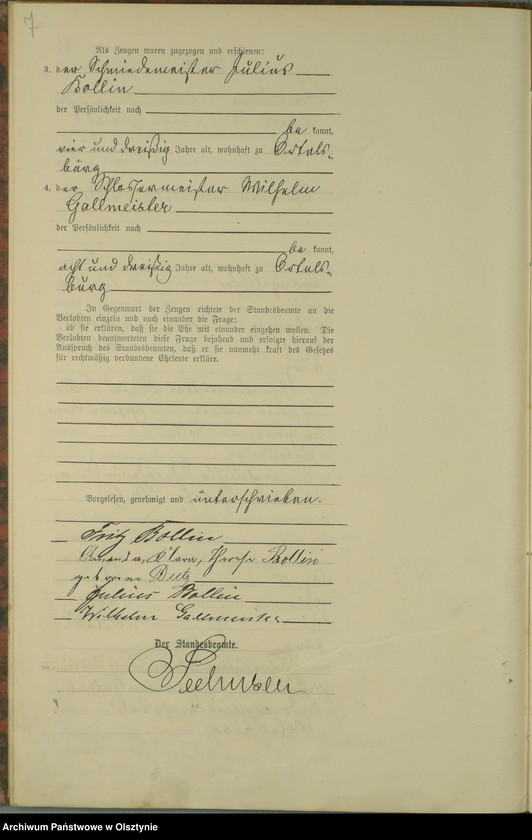 7
Als Zeugen waren zugezogen und erschienen:
3. der Schmiedemeister Julius
Bollin
der Persönlichkeit nach
be kannt,
vier und dreißig Jahre alt, wohnhaft zu Ortels-
burg
4. der Schlossermeister Wilhelm
Gallmeister
der Persönlichkeit nach
be kannt,
acht und dreißig Jahre alt, wohnhaft zu Ortels-
burg
In Gegenwart der Zeugen richtete der Standesbeamte an die
Verlobten einzeln und nach einander die Frage:
ob sie erklären, daß sie die Ehe mit einander eingehen wollen. Die
Verlobten beantworteten diese Frage bejahend und erfolgte hierauf der
Ausspruch des Standesbeamten, daß er sie nunmehr kraft des Gesetzes
für rechtmäßig verbundene Eheleute erkläre.
Vorgelesen, genehmigt und unterschrieben.
Fritz Bollin
Amanda, Klara, Therese Bollin
geborene Dietz
Julius Bollin
Wilhelm Gallmeister
Der Standesbeamte.
Archiwum Państwowe w Olsztynie